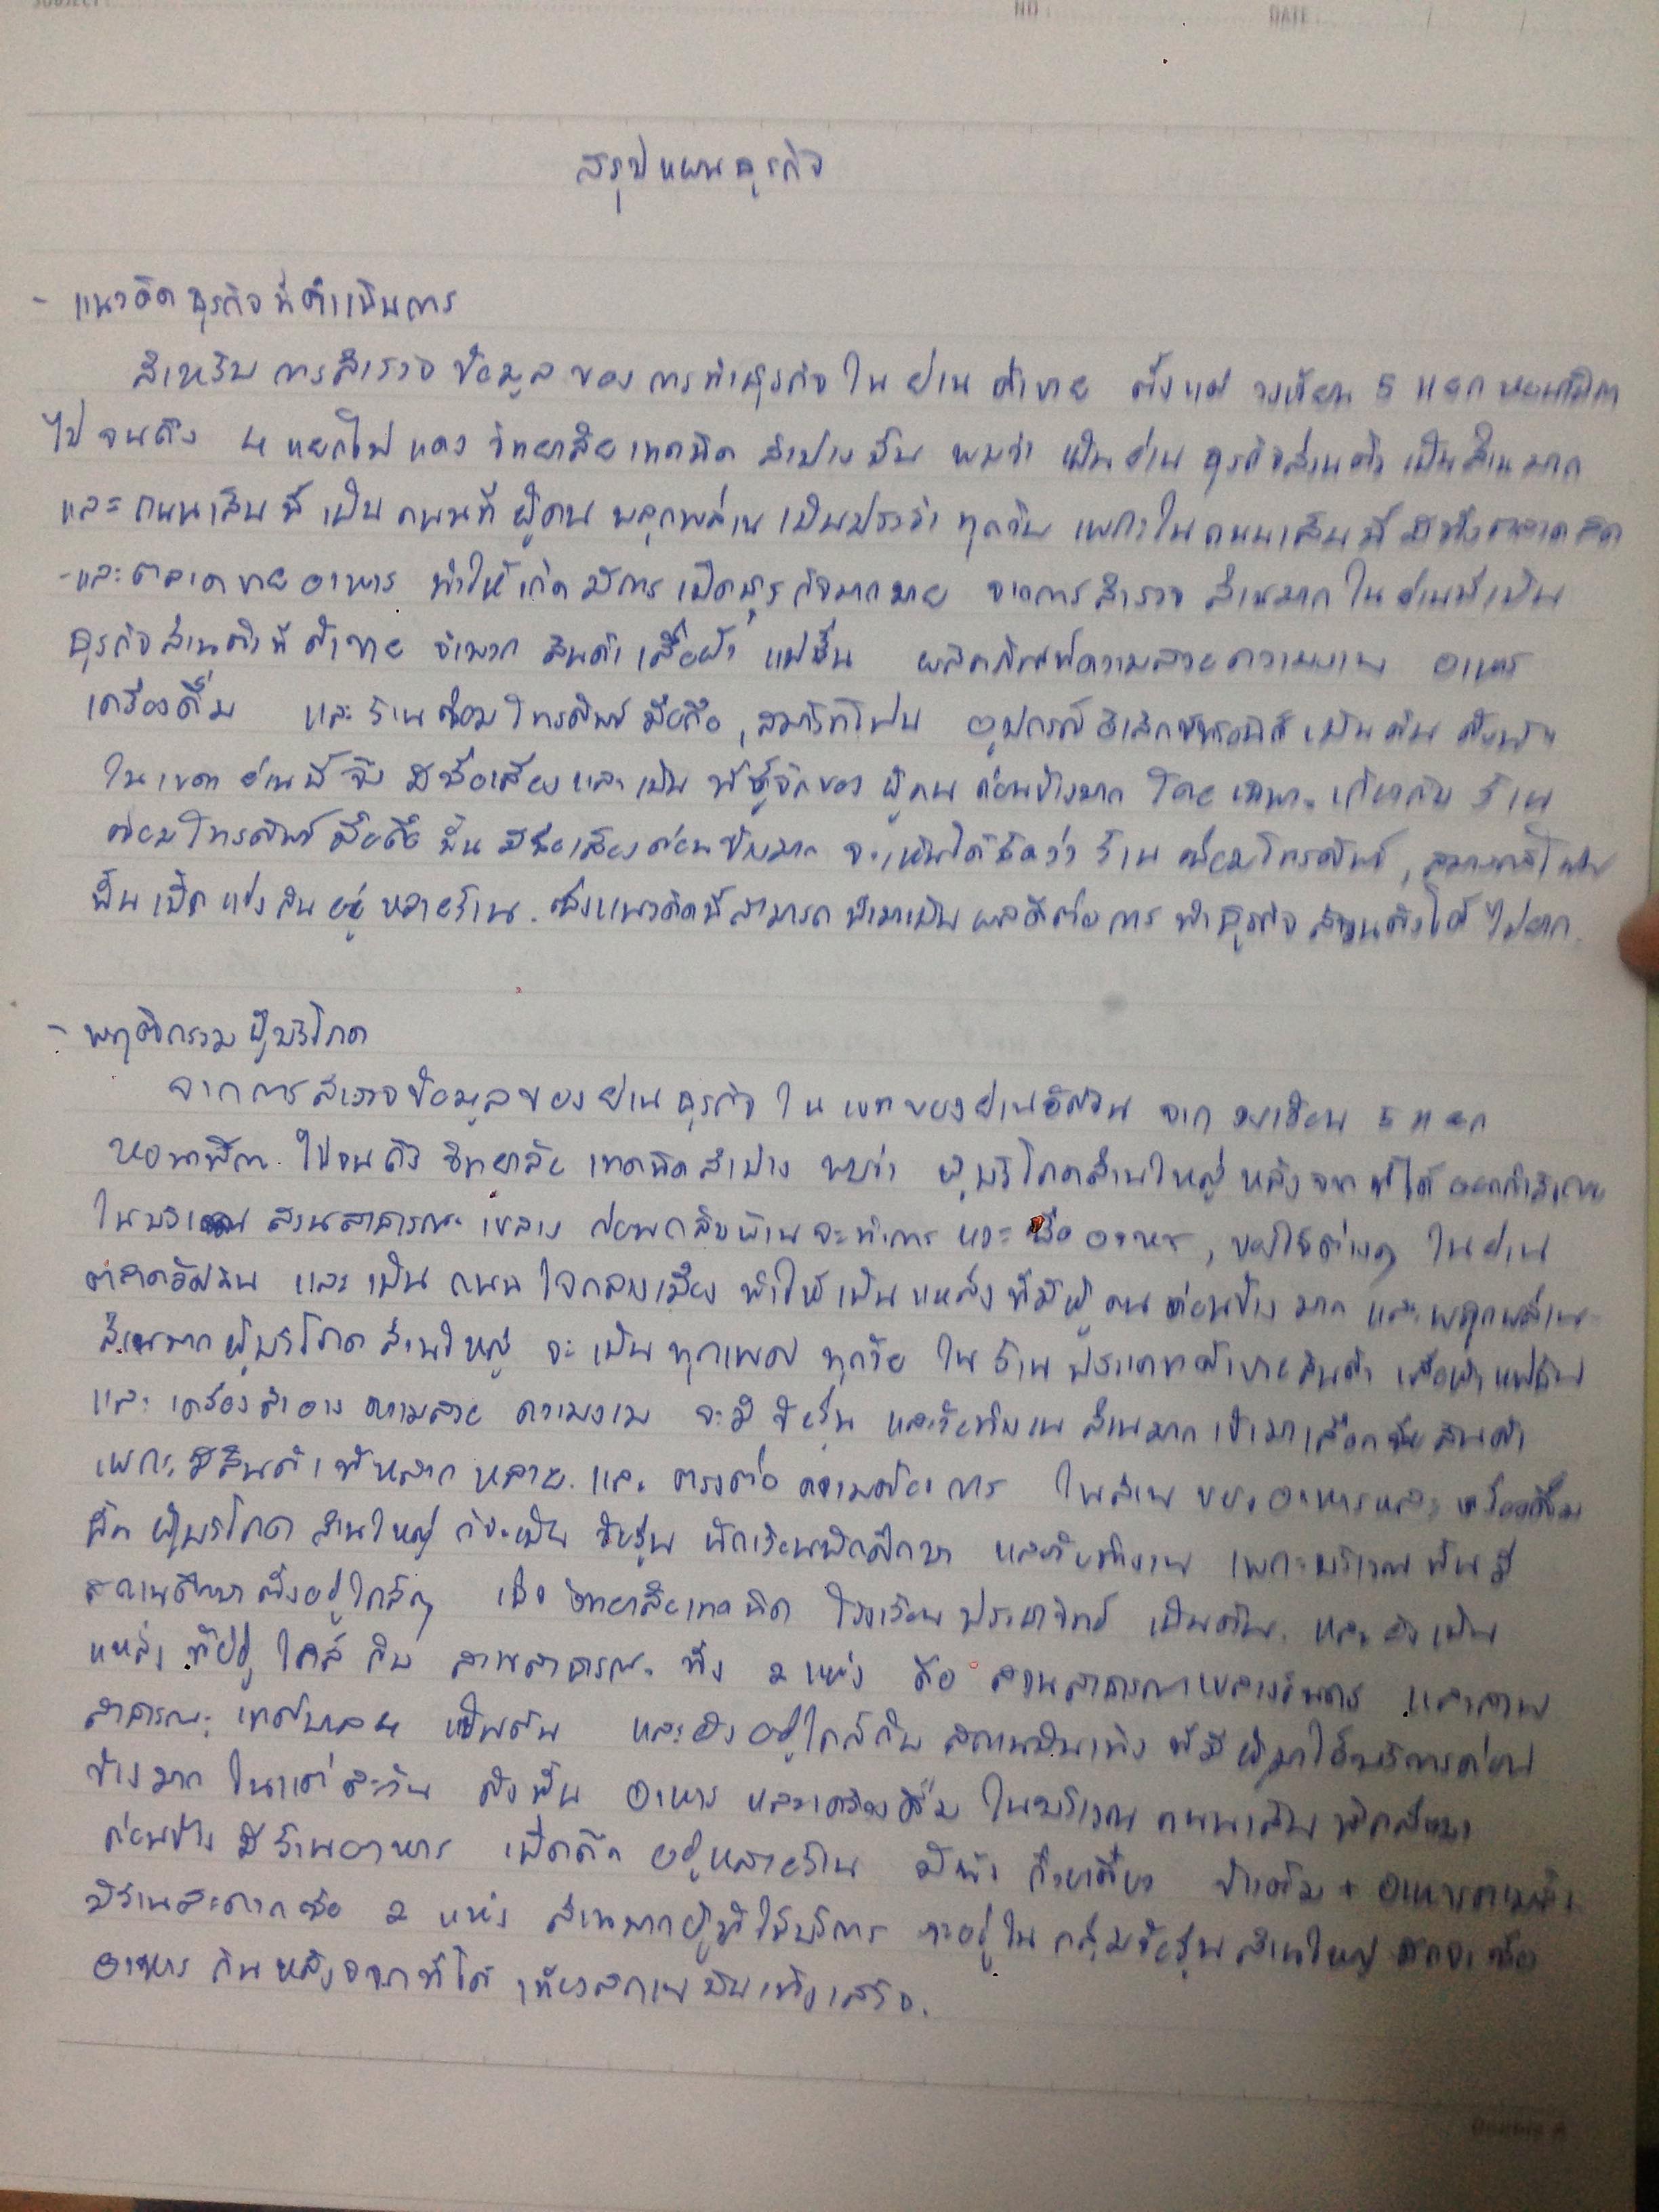 SUBJECT NO DATE
สรุปแผนธุรกิจ
- แนวคิดธุรกิจที่ดำเนินการ
สำหรับการสำรวจข้อมูลของการทำธุรกิจในย่านค้าขาย ตั้งแต่วงเวียน 5 แยกหอนาฬิกา
ไปจนถึง 4 แยกไฟแดงวิทยาลัยเทคนิคลำปางนั้น พบว่า เป็นย่านธุรกิจส่วนตัวเป็นส่วนมาก
และถนนเส้นนี้เป็นถนนที่ผู้คนพลุกพล่านเป็นประจำทุกวัน เพราะในถนนเส้นนี้มีทั้งตลาดสด
และตลาดขายอาหาร ทำให้เกิดมีการเปิดธุรกิจมากมาย จากการสำรวจส่วนมากในย่านนี้เป็น
ธุรกิจส่วนตัวที่ค้าขาย จำพวกสินค้าเสื้อผ้าแฟชั่น ผลิตภัณฑ์ความสวยความงาม อาหาร
เครื่องดื่ม และร้านซ่อมโทรศัพท์มือถือ, สมาร์ทโฟน อุปกรณ์อิเล็กทรอนิกส์ เป็นต้น ดังนั้น
ในเขตย่านนี้จึงมีชื่อเสียงและเป็นที่รู้จักของผู้คนค่อนข้างมาก โดยเฉพาะเกี่ยวกับร้าน
ซ่อมโทรศัพท์มือถือนั้นมีชื่อเสียงค่อนข้างมาก จะเห็นได้ชัดว่าร้านซ่อมโทรศัพท์, สมาร์ทโฟน
นั้นเปิดแข่งกันอยู่หลายร้าน ซึ่งแนวคิดนี้สามารถนำมาเป็นผลดีต่อการทำธุรกิจส่วนตัวได้ไม่ยาก
- พฤติกรรมผู้บริโภค
จากการสำรวจข้อมูลของย่านธุรกิจในเขตของย่านอัศวิน จากวงเวียน 5 แยก
หอนาฬิกา ไปจนถึงวิทยาลัยเทคนิคลำปาง พบว่า ผู้บริโภคส่วนใหญ่หลังจากที่ได้ออกกำลังกาย
ในบริเวณสวนสาธารณะเขลางค์ ก่อนกลับบ้านจะทำการแวะซื้ออาหาร, ของใช้ต่างๆ ในย่าน
ตลาดอัศวิน และเป็นถนนใจกลางเมือง ทำให้เป็นแหล่งที่มีผู้คนค่อนข้างมากและพลุกพล่าน
ส่วนมากผู้บริโภคส่วนใหญ่จะเป็นทุกเพศทุกวัย ในร้านประเภทค้าขายสินค้าเสื้อผ้าแฟชั่น
และเครื่องสำอางความสวยความงาม จะมีวัยรุ่นและวัยทำงานส่วนมากเข้ามาเลือกซื้อสินค้า
เพราะมีสินค้าที่หลากหลาย และตรงต่อความต้องการ ในส่วนของอาหารและเครื่องดื่ม
นั้น ผู้บริโภคส่วนใหญ่ก็จะเป็นวัยรุ่น นักเรียนนักศึกษา และวัยทำงาน เพราะบริเวณนั้นมี
สถานศึกษาตั้งอยู่ใกล้ๆ เช่น วิทยาลัยเทคนิค โรงเรียนประชาวิทย์ เป็นต้น และยังเป็น
แหล่งที่อยู่ใกล้กับสวนสาธารณะทั้ง 2 แห่ง คือ สวนสาธารณะเขลางค์นคร และสวน
สาธารณะเทศบาล 4 เป็นต้น และยังอยู่ใกล้กับสถานบันเทิงที่มีผู้มาใช้บริการค่อน
ข้างมากในแต่ละวัน ดังนั้นอาหารและเครื่องดื่มในบริเวณถนนเส้นนี้
ค่อนข้างมีร้านอาหารเปิดดึกอยู่หลายร้าน มีทั้งก๋วยเตี๋ยว ข้าวต้ม + อาหารตามสั่ง
มีร้านสะดวกซื้อ 2 แห่ง ส่วนมากผู้ที่ใช้บริการจะอยู่ในกลุ่มวัยรุ่นส่วนใหญ่มักจะซื้อ
อาหารกินหลังจากที่ได้เที่ยวสถานบันเทิงเสร็จ.
Double A